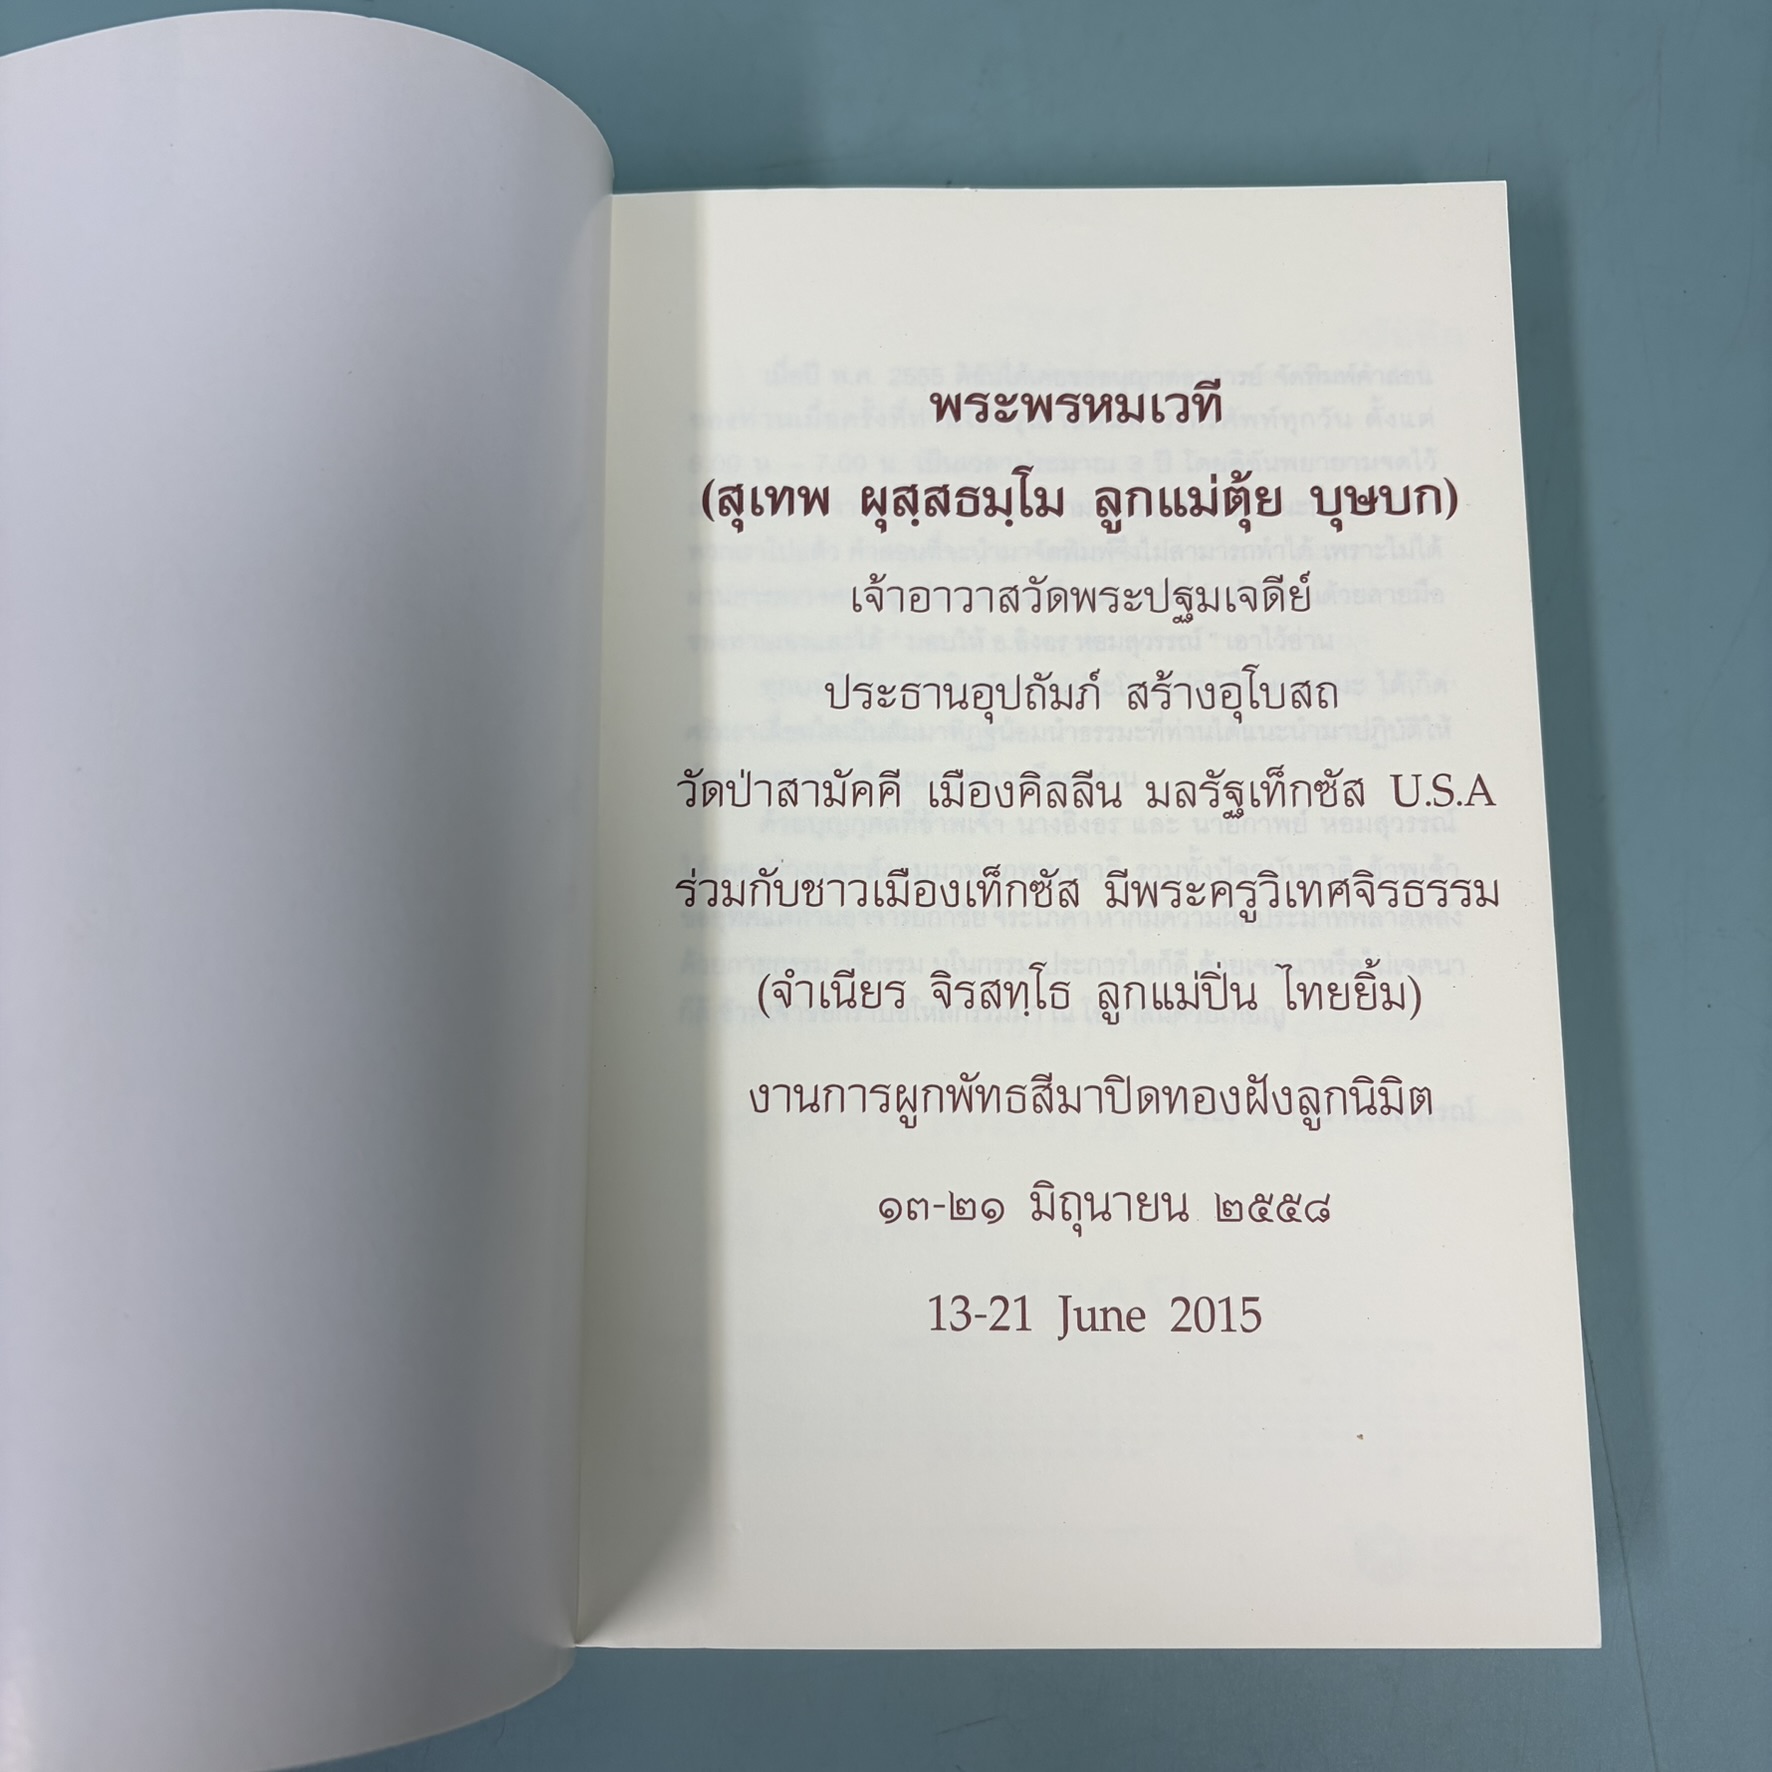 พระพรหมเวที
(สุเทพ ผุสฺสธมฺโม ลูกแม่ตุ้ย บุษบก)
เจ้าอาวาสวัดพระปฐมเจดีย์
ประธานอุปถัมภ์ สร้างอุโบสถ
วัดป่าสามัคคี เมืองคิลลีน มลรัฐเท็กซัส U.S.A
ร่วมกับชาวเมืองเท็กซัส มีพระครูวิเทศจิรธรรม
(จำเนียร จิรสทฺโธ ลูกแม่ปิ่น ไทยยิ้ม)
งานการผูกพัทธสีมาปิดทองฝังลูกนิมิต
๑๓-๒๑ มิถุนายน ๒๕๕๘
13-21 June 2015